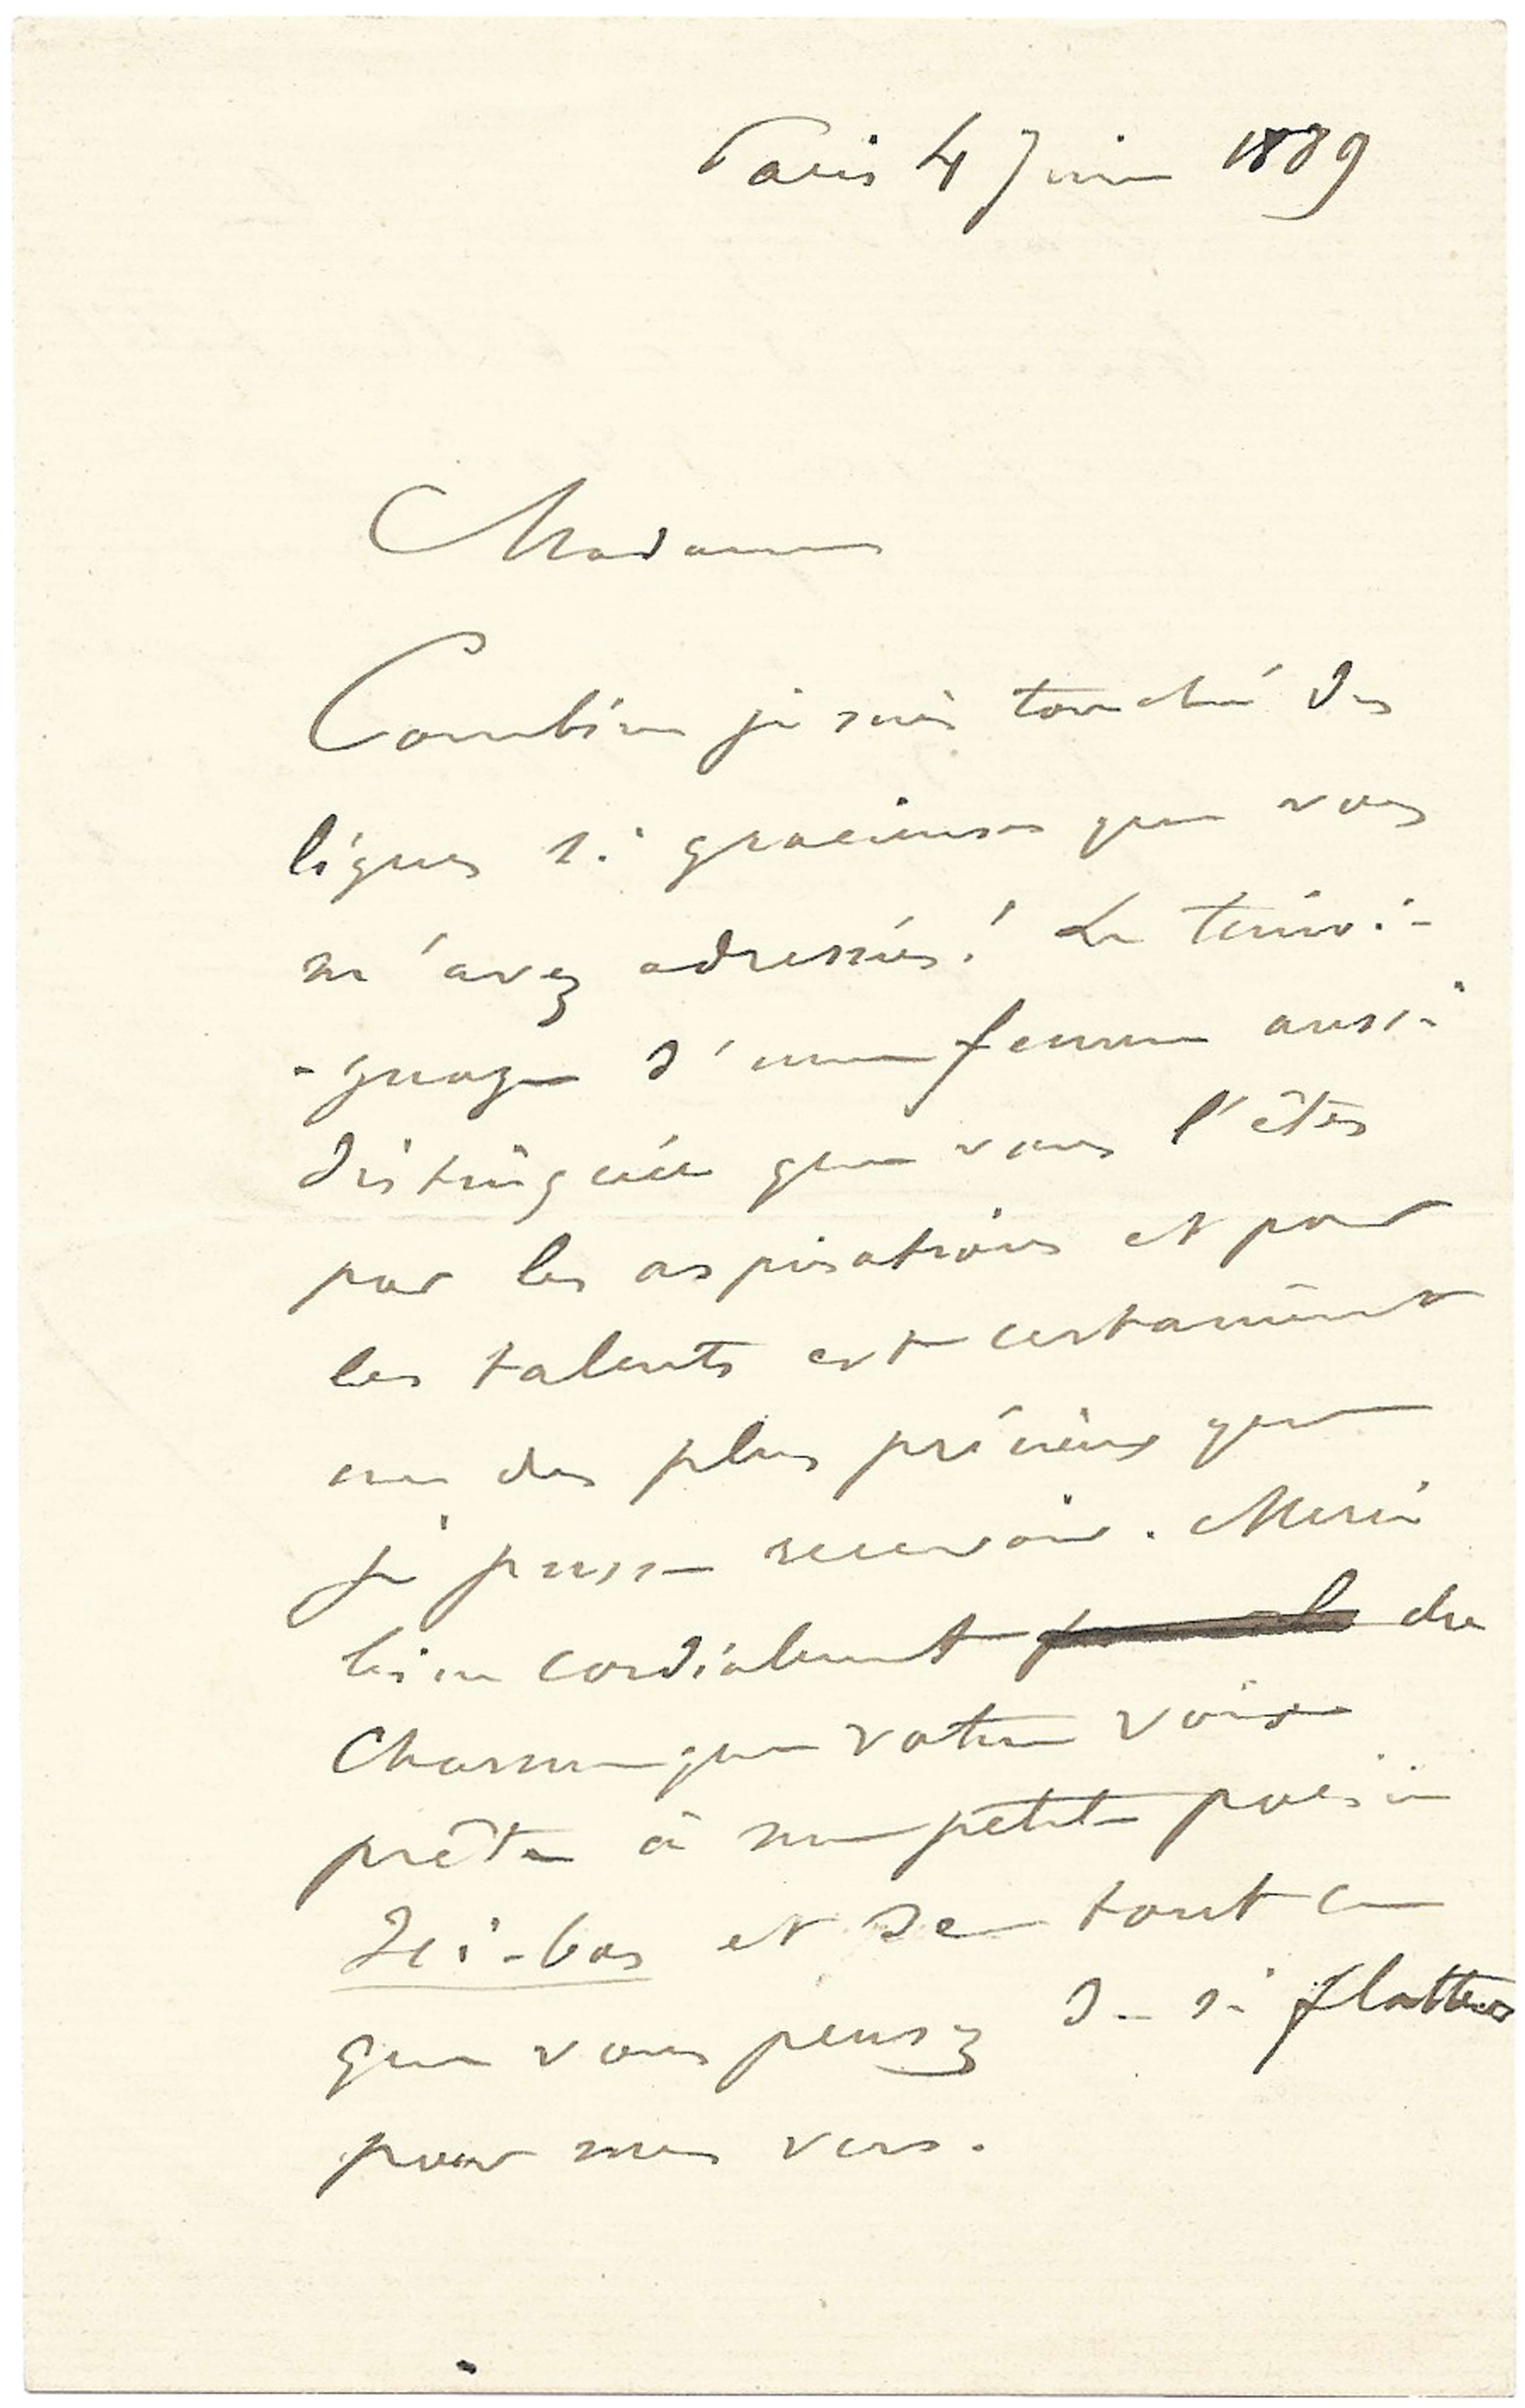 Paris 4 Juin 1889
Madame
Combien je suis touché des
lignes si gracieuses que vous
m'avez adressées! Le témoi-
-gnage d'une femme aussi
distinguée que vous l'êtes
par les aspirations et par
les talents est certainement
un des plus précieux que
je puisse recevoir. Merci
bien cordialement du
charme que votre voix
prête à ma petite poésie
Ici-bas et de tout ce
que vous pensez de si flatteur
pour mes vers.